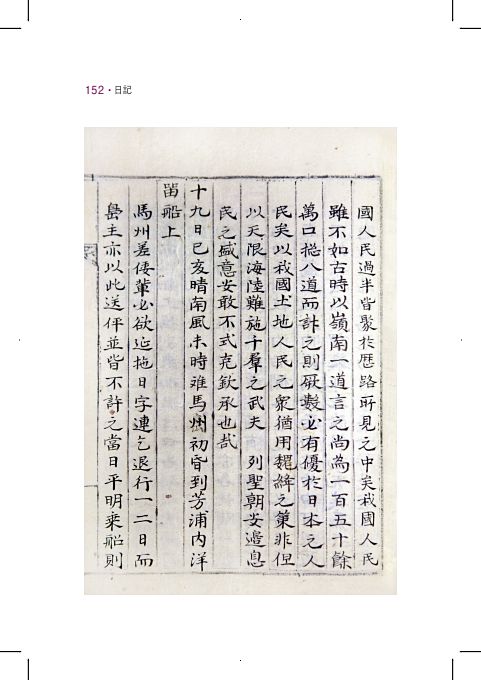 152 • 日記
國人民過半皆聚於歷路所見之中矣我國人民
雖不如古時以嶺南一道言之尚為一百五十餘
萬口摠八道而計之則厥數必有優於日本之人
民矣以我國土地人民之衆猶用魏絳之策非但
以天限海陸難施千羣之武夫 列聖朝安邊息
民之盛意安敢不式克欽承也哉
十九日己亥晴南風未時離馬州初昏到芳浦內洋
留船上
馬州差倭輩必欲延拖日字連乞退行一二日而
島主亦以此送伻並皆不許之當日平明乘船則